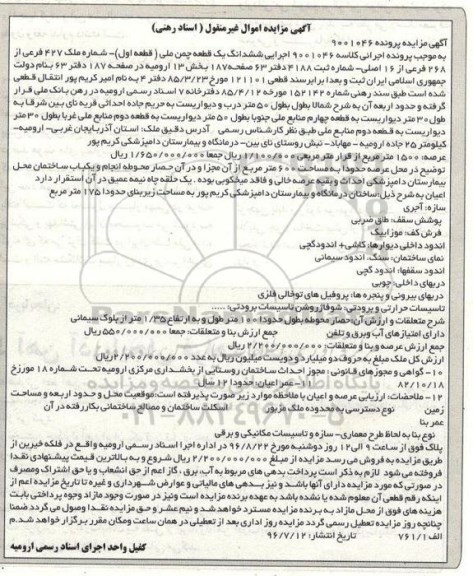 آگهی مزایده اموال غیرمنقول ( اسناد رهنی)
آگهی مزایده پرونده ۹۰۰۱۰۴۶
به موجب پرونده اجرائی کلاسه ۹۰۰۱۰۴۶ اجرایی ششدانگ یک قطعه چمن ملی ( قطعه اول)- شماره ملک ۴۲۷ فرعی از
۲۶۸ فرعی از ۱۶ اصلی- شماره ثبت ۲۱۸۸ دفتر ۶۳ صفحه ۱۸۷ بخش ۱۳ ارومیه در صفحه ۱۸۷ دفتر ۶۳ بنام دولت
جمهوری اسلامی ایران ثبت و بعدا برابر سند قطعی ۱۲۱۱۰۱ مورخ ۸۵/۳/۲۳ دفتر ۴ به نام امیر کریم پور انتقال قطعی
شده است طبق سند رهنی شماره ۱۵۲۱۴۲ مورخه ۸۵/۴/۱۲ دفترخانه ۷ اسناد رسمی ارومیه در رهن بانک ملی قرار
گرفته و حدود اربعه آن به شرح شمالا بطول بطول ۵۰ متر درب و دیواریست به حریم جاده احداثی قریه نای بین شرقا به
طول ۳۰ متر دیواریست به قطعه چهارم منابع ملی جنوبا بطول ۵۰ متر دیواریست به قطعه دوم منابع ملی غربا بطول ۳۰ متر
دیواریست به قطعه دوم منابع ملی طبق نظر کارشناس رسمی آدرس دقیق ملک: استان آذربایجان غربی- ارومیه-
کیلومتر ۲۵ جاده ارومیه - مهاباد- نبش روستای نای بین- درمانگاه و بیمارستان دامپزشکی کریم پور
عرصه: ۱۵۰۰ متر مربع از قرار متر مربعی ۱/۱۰۰/۰۰۰ ریال جمعا ۱/۶۵۰/۰۰۰/۰۰۰ ریال
توضیح در محل عرصه حدودا به مساحت ۶۰۰ متر مربع از آن مجزا و در آن حصار محوطه انجام و یکباب ساختمان محل
بیمارستان دامپزشکی احداث و بقیه عرصه خالی و فاقد میخکوبی بوده . یک حلقه چاه نیمه عمیق در آن استقرار دارد
اعیان به شرح ذیل:ساختان درمانگاه و بیمارستان دامپزشکی کریم پور به مساحت زیربنای حدودا ۱۷۵ متر مربع
سازه: آجری
پوشش سقف: طاق ضربی
فرش کف: موزاییک
اندود داخلی دیوارها: کاشی+ اندودگچی
نمای ساختمان: سنگ، اندود سیمانی
اندود سقفها: اندود گچی
دربهای داخلی: چوبی
دربهای بیرونی و پنجره ها: پروفیل های توخالی فلزی
تاسیسات حرارتی و برودتی: شوفاژ روشن تاسیسات برودتی: .....
شرح متعلقات و ارزش آن: حصار محوطه بطول حدودا ۱۰۰ متر طول و به ارتفاع ۱/۳۵ متر از بلوک سیمانی
دارای امتیازهای آب وبرق و تلفن جمع ارزش بنا و متعلقات: جمعا ۵۵۰/۰۰۰/۰۰۰ ریال
جمع ارزش عرصه و بنا و متعلقات : ۲/۲۰۰/۰۰۰/۰۰۰ ریال
ارزش کل ملک مبلغ به حروف دو میلیارد و دویست میلیون ریال به عدد ۲/۲۰۰/۰۰۰/۰۰۰ ریال
۱۰- گواهی و مجوزهای قانونی: مجوز احداث ساختمان روستایی از بخشداری مرکزی ارومیه تحت شماره ۱۸ مورخ
۸۲/۱۰/۱۸ ۱۱- عمر اعیان: حدودا ۱۲ سال
۱۲- ملاحضات: ارزیابی عرصه و اعیان با ملاحظه موارد زیر صورت پذیرفته است: موقعیت محل و حدود اربعه و مساحت
زمین نوع دسترسی به محدوده ملک مزبور اسکلت ساختمان و مصالح ساختمانی بکار رفته در آن
عمر بنا
نوع بنا به لحاظ طرح معماری- سازه و تاسیسات مکانیکی و برقی
پلاک فوق از ساعت ۹ الی ۱۲ روز دوشنبه مورخ ۹۶/۸/۲۲ در اداره اجرا اسناد رسمی ارومیه واقع در فلکه خیرین از
طریق مزایده به فروش می رسد مزایده از مبلغ ۲/۲۰۰/۰۰۰/۰۰۰ ریال شروع و به بالاترین قیمت پیشنهادی نقدا
فروخته می شود لازم به ذکر است پرداخت بدهی های مربوط به آب، برق ، گاز اعم از حق انشعاب و یا حق اشتراک و مصرف
در صورتی که مورد مزایده دارای آنها باشد و نیز بدهی های مالیاتی و عوارض شهرداری و غیره تا تاریخ مزایده اعم از
اینکه رقم قطعی آن معلوم شده یا نشده باشد به عهده برنده مزایده است و نیز در صورت وجود مازاد وجوه پرداختی بابت
هزینه های فوق از محل مازاد به برنده مزایده مسترد خواهد شد و نیم عشر و حق مزایده نقدا وصول می گردد ضمنا
چنانچه روز مزایده تعطیل رسمی گردد مزایده روز اداری بعد از تعطیلی در همان ساعت ومکان مقرر برگزار خواهد شد.م
الف ۷۶۱/۱ تاریخ انتشار: ۹۶/۷/۱۲
کفیل واحد اجرای اسناد رسمی ارومیه